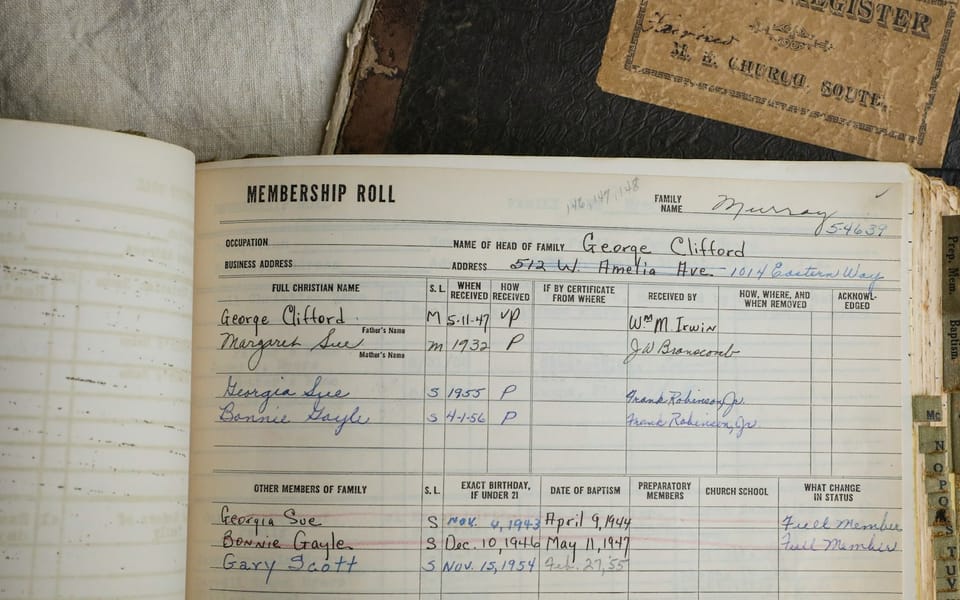 REGISTER
M. E. CHURCH, SOUTH.
MEMBERSHIP ROLL
146, 147, 148
FAMILY NAME Murray
54639
OCCUPATION NAME OF HEAD OF FAMILY George Clifford
BUSINESS ADDRESS ADDRESS 512 W. Amelia Ave. 1014 Eastern Way
FULL CHRISTIAN NAME S. L. WHEN RECEIVED HOW RECEIVED IF BY CERTIFICATE FROM WHERE RECEIVED BY HOW, WHERE, AND WHEN REMOVED ACKNOWL-EDGED
George Clifford M 5-11-47 VP Wm M Irwin
Father's Name
Margaret Sue m 1932 P JW Branscomb
Mother's Name
Georgia Sue S 1955 P Frank Robinson, Jr.
Bonnie Gayle S 4-1-56 P Frank Robinson, Jr
OTHER MEMBERS OF FAMILY S. L. EXACT BIRTHDAY, IF UNDER 21 DATE OF BAPTISM PREPARATORY MEMBERS CHURCH SCHOOL WHAT CHANGE IN STATUS
Georgia Sue S Nov. 4, 1943 April 9, 1944 Full Member
Bonnie Gayle S Dec. 10, 1946 May 11, 1947 Full Member
Gary Scott S Nov. 15, 1954 Feb. 27, '55
Prep. Mem.
Baptism
Mc
N
O
P
S
T
U
V